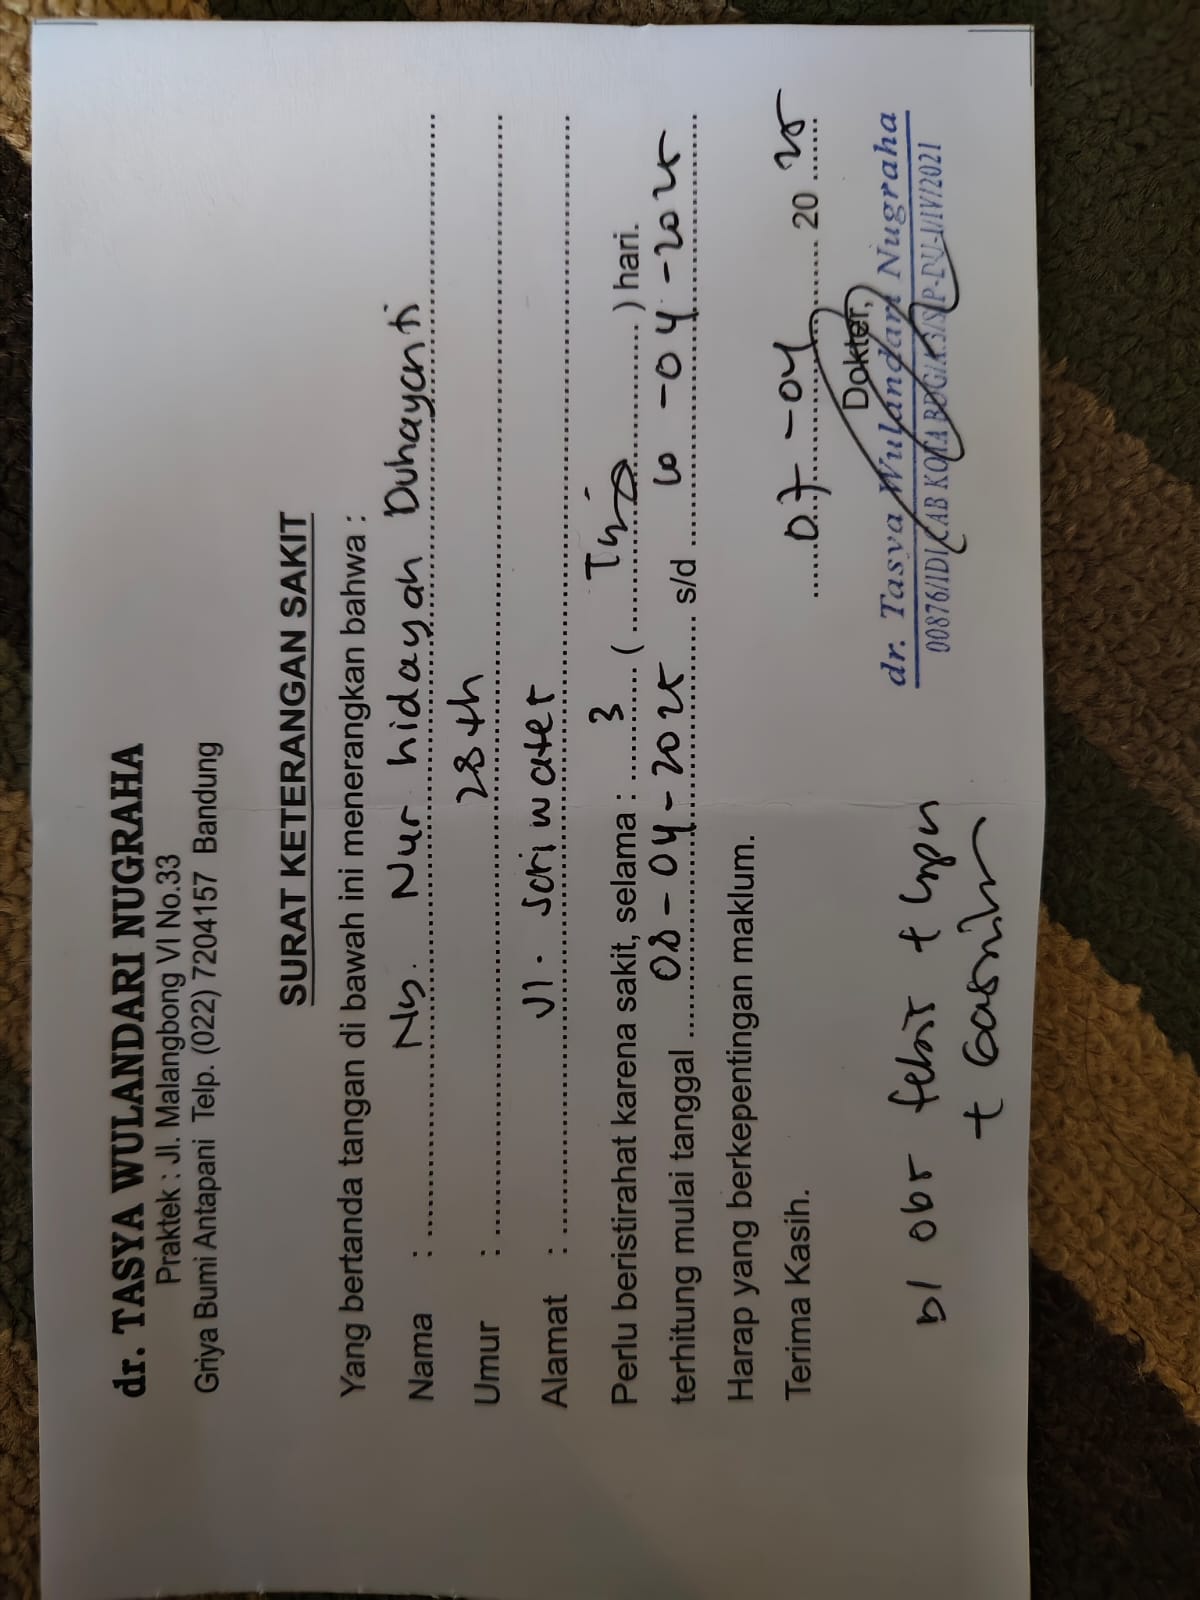 dr. TASYA WULANDARI NUGRAHA
Praktek : Jl. Malangbong VI No.33
Griya Bumi Antapani Telp. (022) 7204157 Bandung
SURAT KETERANGAN SAKIT
Yang bertanda tangan di bawah ini menerangkan bahwa :
Nama : Ny. Nur hidayah Duhayanti
Umur : 28 th
Alamat : Jl. Sariwater
Perlu beristirahat karena sakit, selama : 3 ( Tiga ) hari.
terhitung mulai tanggal 08-04-2025 s/d 10-04-2025
Harap yang berkepentingan maklum.
Terima Kasih.
07-04 20 25
Dokter,
dr. Tasya Wulandari Nugraha
00876/IDI CAB KOTA BDG/A.3/SIP-DU-I/IV/2021
obs febris +
+